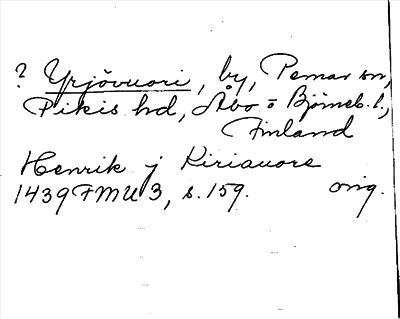 ? Yrjövuori, by, Pemar sn,
Pikis hd, Åbo o Björneb. l.,
Finland
Henrik j Kiriauore
1439 FMU 3, s. 159. orig.